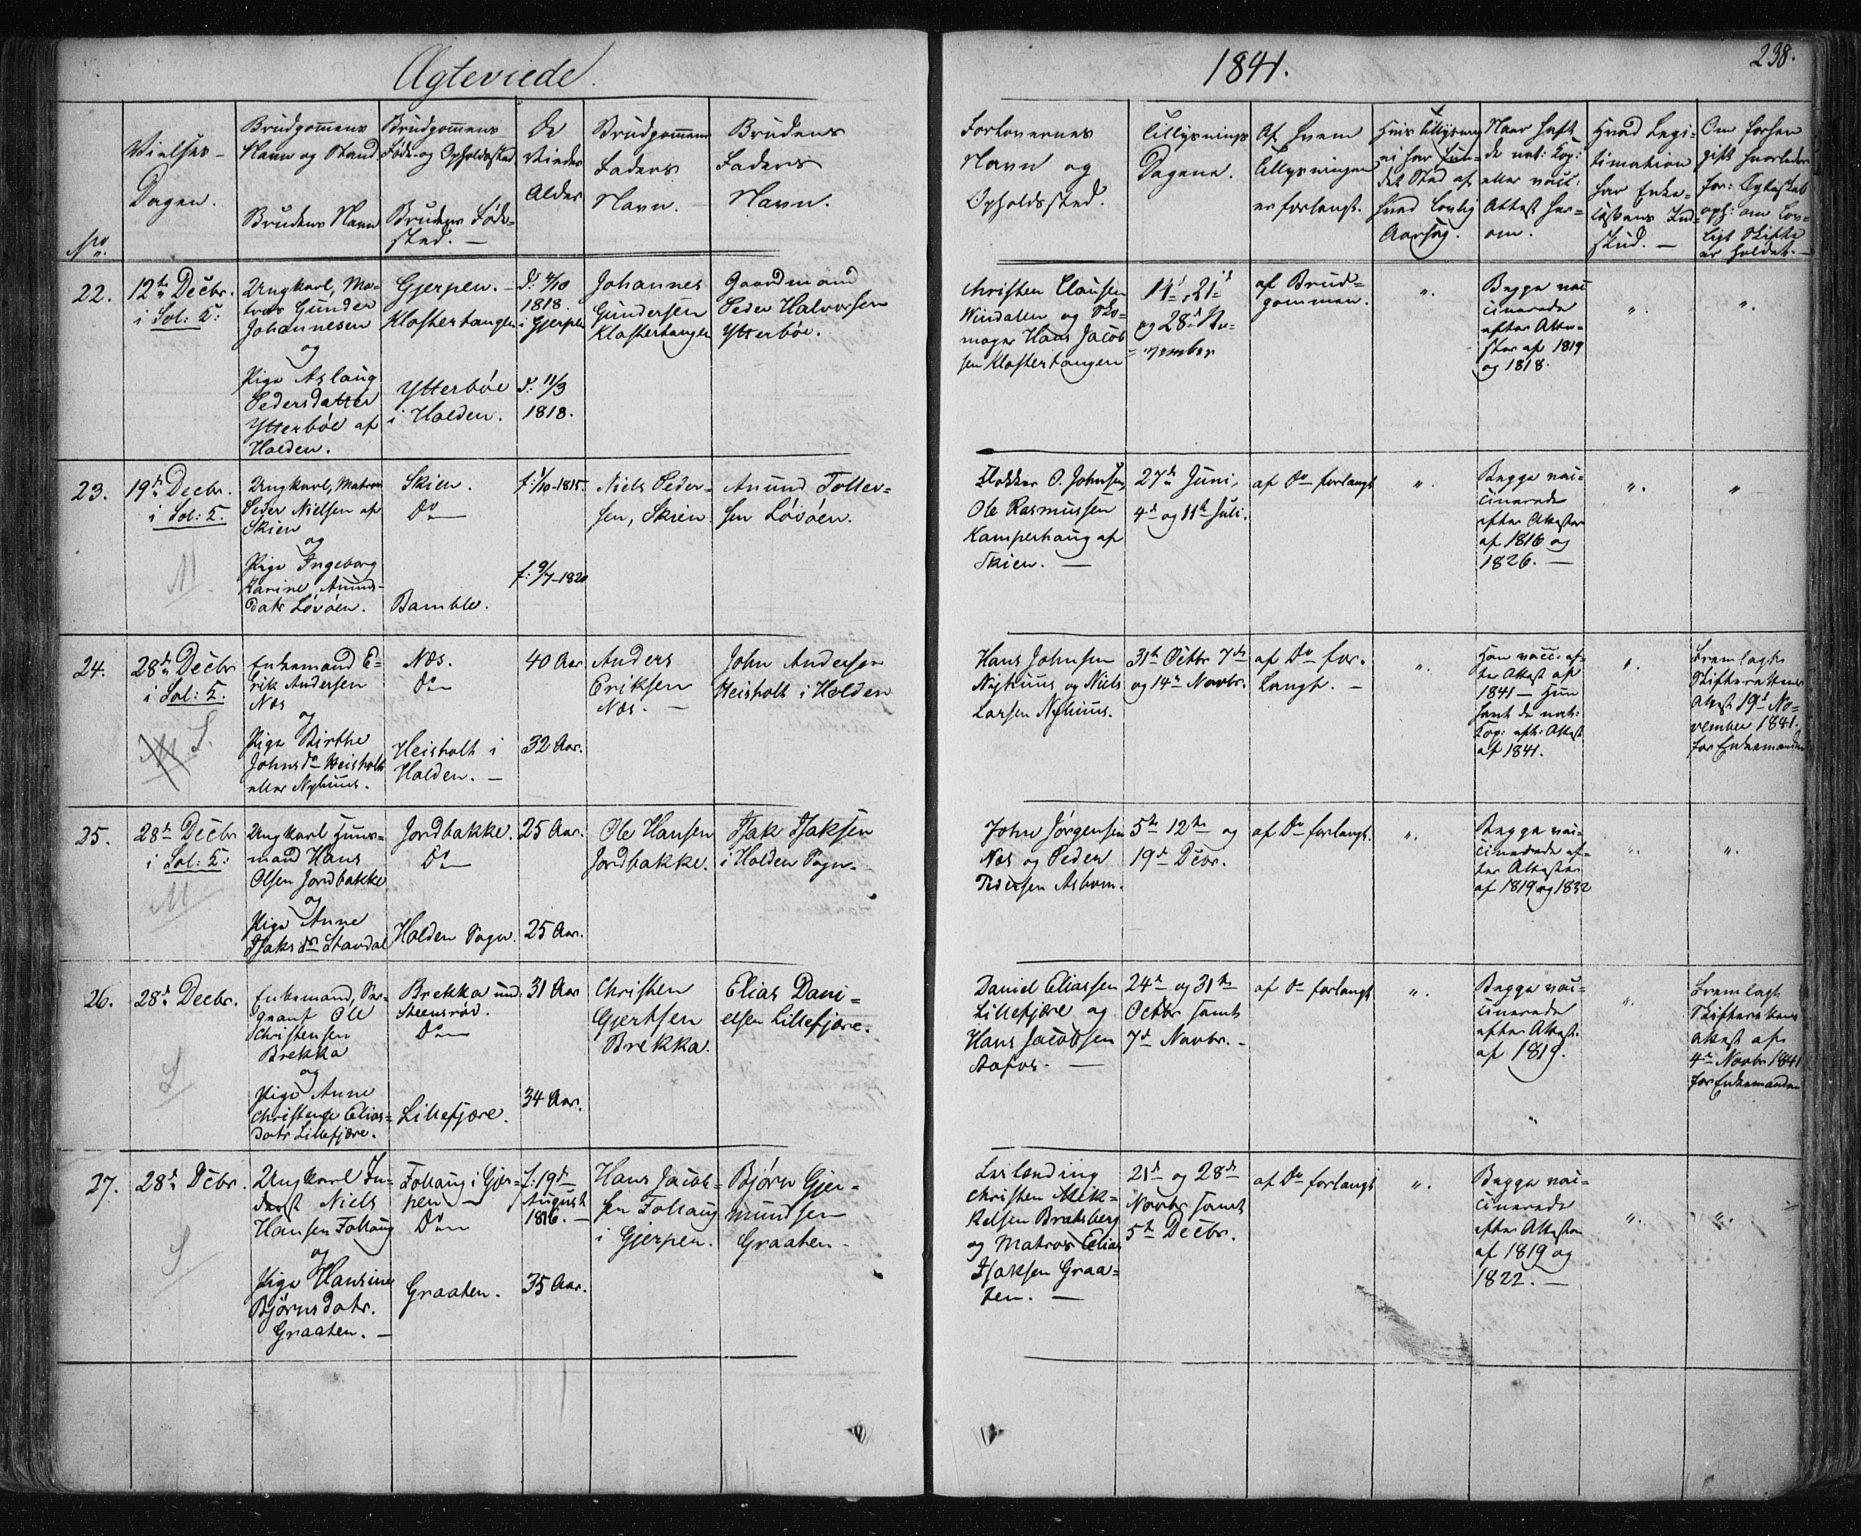 Ægteviede.
1841.
238.
No
Vielses-
Dagen.
Brudgommens
Navn og Stand
Brudens Navn
Brudgommens
Føde- og Opholdssted
Brudens Føde-
sted. —
De
Viedes
Alder
Brudgommens
Faders
Navn. —
Brudens
Faders
Navn.
Forlovernes
Navn og
Opholdssted.
Tillysnings
Dagene.
Af hvem
Tillysningen
er forlangt.
Hvis Tillysning
ei har fun-
det Sted af
hvad lovlig
Aarsag.
Naar hafte
de nat: Kop:
eller vacc:
Attest her-
om.
Hvad Legi-
timation
har Enke-
Om forhen
gift hvorledes
for: Ægteskab
oph: om lov-
ligt Skifte
er holdet. —
22.
12te Decbr.
i Sol: K:
Ungkarl, Ma-
tros Gunder
Johannesen
og
Pige Aslaug
Pedersdatter
Ytterbøe af
Holden.
Gjerpen. —
Klostertangen
Ytterbøe
i Holden.
1818.
i Gjerpen
d: 11/3
1818.
Johannes
Gundersen
Klostertangen
Gaardmand
Peder Halvorsen
Ytterbøe.
Christen Clausen
Windalen og Sko-
mager Hans Jacob-
sen Klostertangen
14d, 21d
og 28d No-
vember
af Brud-
gommen.
".
Begge vac
cinerede
efter Atte-
ster af 1819
og 1818.
".
".
23.
19de Decbr.
i Sol: K.
M.
Ungkarl, Matros
Peder Nielsen af
Skien
og
Pige Ingeborg
Karine Anunds-
datr Løvøen.
Skien.
Do
Bamble.
f: 1/10-1815
f: 9/7-1820
Niels Peder-
sen, Skien.
Anund Tollev-
sen Løvøen.
Flokker O. Johnsen,
Ole Rasmussen
Kamperhaug af
Skien. —
27de Juni,
4de og 11te Juli.
af Do forlangt
".
Begge vac-
cinerede
efter Attester
af 1816 og
1826. —
".
"
24.
28de Decbr
i Sol: K.
S.
Enkemand E-
rik Andersen
Næs
og
Pige Birthe
Johnsdr Heisholt
eller Nyhuus.
Næs.
Do
Heisholt i
Holden. —
40 Aar
32 Aar.
Anders
Eriksen
Næs. —
John Andersen
Heisholt i Holden
Hans Johnsen
Nyhuus og Niels
Larsen Nyhuus.
31te Octbr 7de
og 14de Novbr.
af Do for-
langt. —
".
Han vacc: ef-
ter Attest af
1841 — Hun
havt de nat:
Kop: eft: Attest
af 1841.
".
Fremlagte
Skifterettens
Attest 19d No-
vember 1841.
for Enkemanden
25.
28de Decbr
i Sol: K:
M
Ungkarl Huus-
mand Hans
Olsen Jordbakke
og
Pige Anne
Isaksdr Stavdal
Jordbakke.
Do
Holden Sogn.
25 Aar.
25 Aar.
Ole Hansen
Jordbakke.
Isak Isaksen
i Holden Sogn.
John Jørgensen
Næs og Peder
5te 12te og
19de Dcbr.
af Do forlangt.
".
Begge vac-
cinerede ef-
ter Attester
af 1819 og 1832
".
".
26.
28de Decbr.
S
Enkemand, Ser-
geant Ole
Christensen
Brekka
og
Pige Anne
Christense Elias-
datr Lillefjære.
Brekka und:
Steensrød.
Do
Lillefjære.
31 Aar
34 Aar.
Christen
Gjertsen
Brekka.
Elias Dani-
elsen Lillefjære.
Daniel Eliassen
Lillefjære og
Hans Jacobsen
24de og 31te
Octbr samt
7de Novbr. —
af Do forlangt
".
Begge vac-
cinerede
efter Attest
af 1819.
"
".
Fremlagt
Skifterettens
Attest af
4de Novbr 1841
for Enkemanden
27.
28de Dcbr.
S.
Ungkarl In-
derst Niels
Hansen Follaug
og
Pige Hansine
Bjørnsdatr.
Graaten. —
Follaug i Gjer-
pen —
Do
Graaten.
f: 19de
August
1816. —
35 Aar.
Hans Jacob-
sen Follaug
i Gjerpen.
Bjørn Gjer-
mundsen
Graaten.
Christen Mik-
kelsen Bratsberg
og Matros Elias
Isaksen Graa-
ten. —
21de og 28de
Novbr samt
5te Decbr.
af Do forlangt
".
Begge vac-
cinerede
efter Attester
af 1819 og
1822. —
".
".